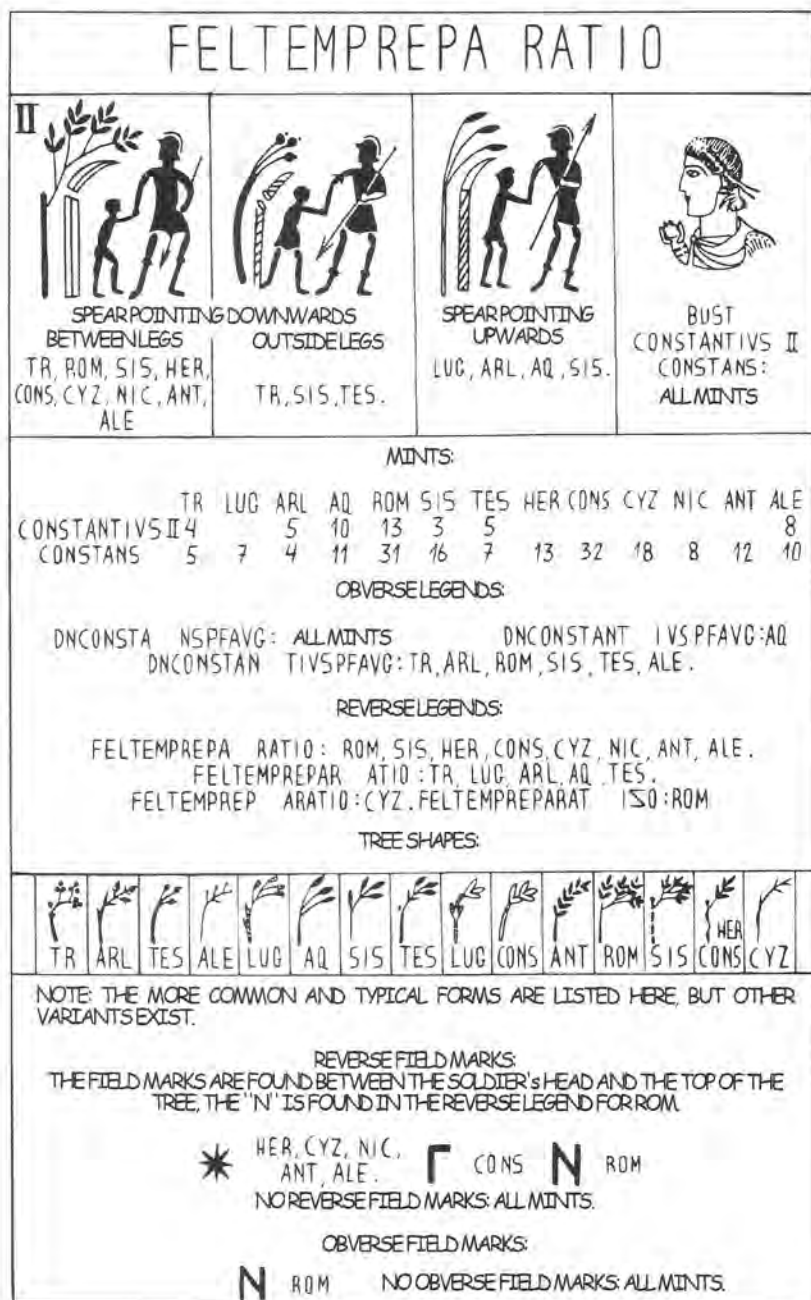 FELTEMPREPA RATIO
II
SPEAR POINTING DOWNWARDS
BETWEEN LEGS
TR, ROM, SIS, HER,
CONS, CYZ, NIC, ANT,
ALE
OUTSIDE LEGS
TR, SIS, TES.
SPEAR POINTING
UPWARDS
LUG, ARL, AQ, SIS.
BUST
CONSTANTIVS II
CONSTANS:
ALL MINTS
MINTS:
TR LUG ARL AQ ROM SIS TES HER CONS CYZ NIC ANT ALE
CONSTANTIVS II 4 5 10 13 3 5 8
CONSTANS 5 7 4 11 31 16 7 13 32 18 8 12 10
OBVERSE LEGENDS:
DNCONSTA NSPFAVG: ALL MINTS DNCONSTANT IVSPFAVG:AQ
DNCONSTAN TIVSPFAVG:TR, ARL, ROM, SIS, TES, ALE.
REVERSE LEGENDS:
FELTEMPREPA RATIO: ROM, SIS, HER, CONS, CYZ, NIC, ANT, ALE.
FELTEMPREPAR ATIO:TR, LUG, ARL, AQ, TES.
FELTEMPREP ARATIO:CYZ. FELTEMPREPARAT ISO:ROM
TREE SHAPES:
TR ARL TES ALE LUG AQ SIS TES LUG CONS ANT ROM SIS HER CONS CYZ
NOTE: THE MORE COMMON AND TYPICAL FORMS ARE LISTED HERE, BUT OTHER
VARIANTS EXIST.
REVERSE FIELD MARKS:
THE FIELD MARKS ARE FOUND BETWEEN THE SOLDIER's HEAD AND THE TOP OF THE
TREE, THE "N" IS FOUND IN THE REVERSE LEGEND FOR ROM.
* HER, CYZ, NIC, ANT, ALE. Γ CONS N ROM
NO REVERSE FIELD MARKS: ALL MINTS.
OBVERSE FIELD MARKS:
N ROM NO OBVERSE FIELD MARKS: ALL MINTS.